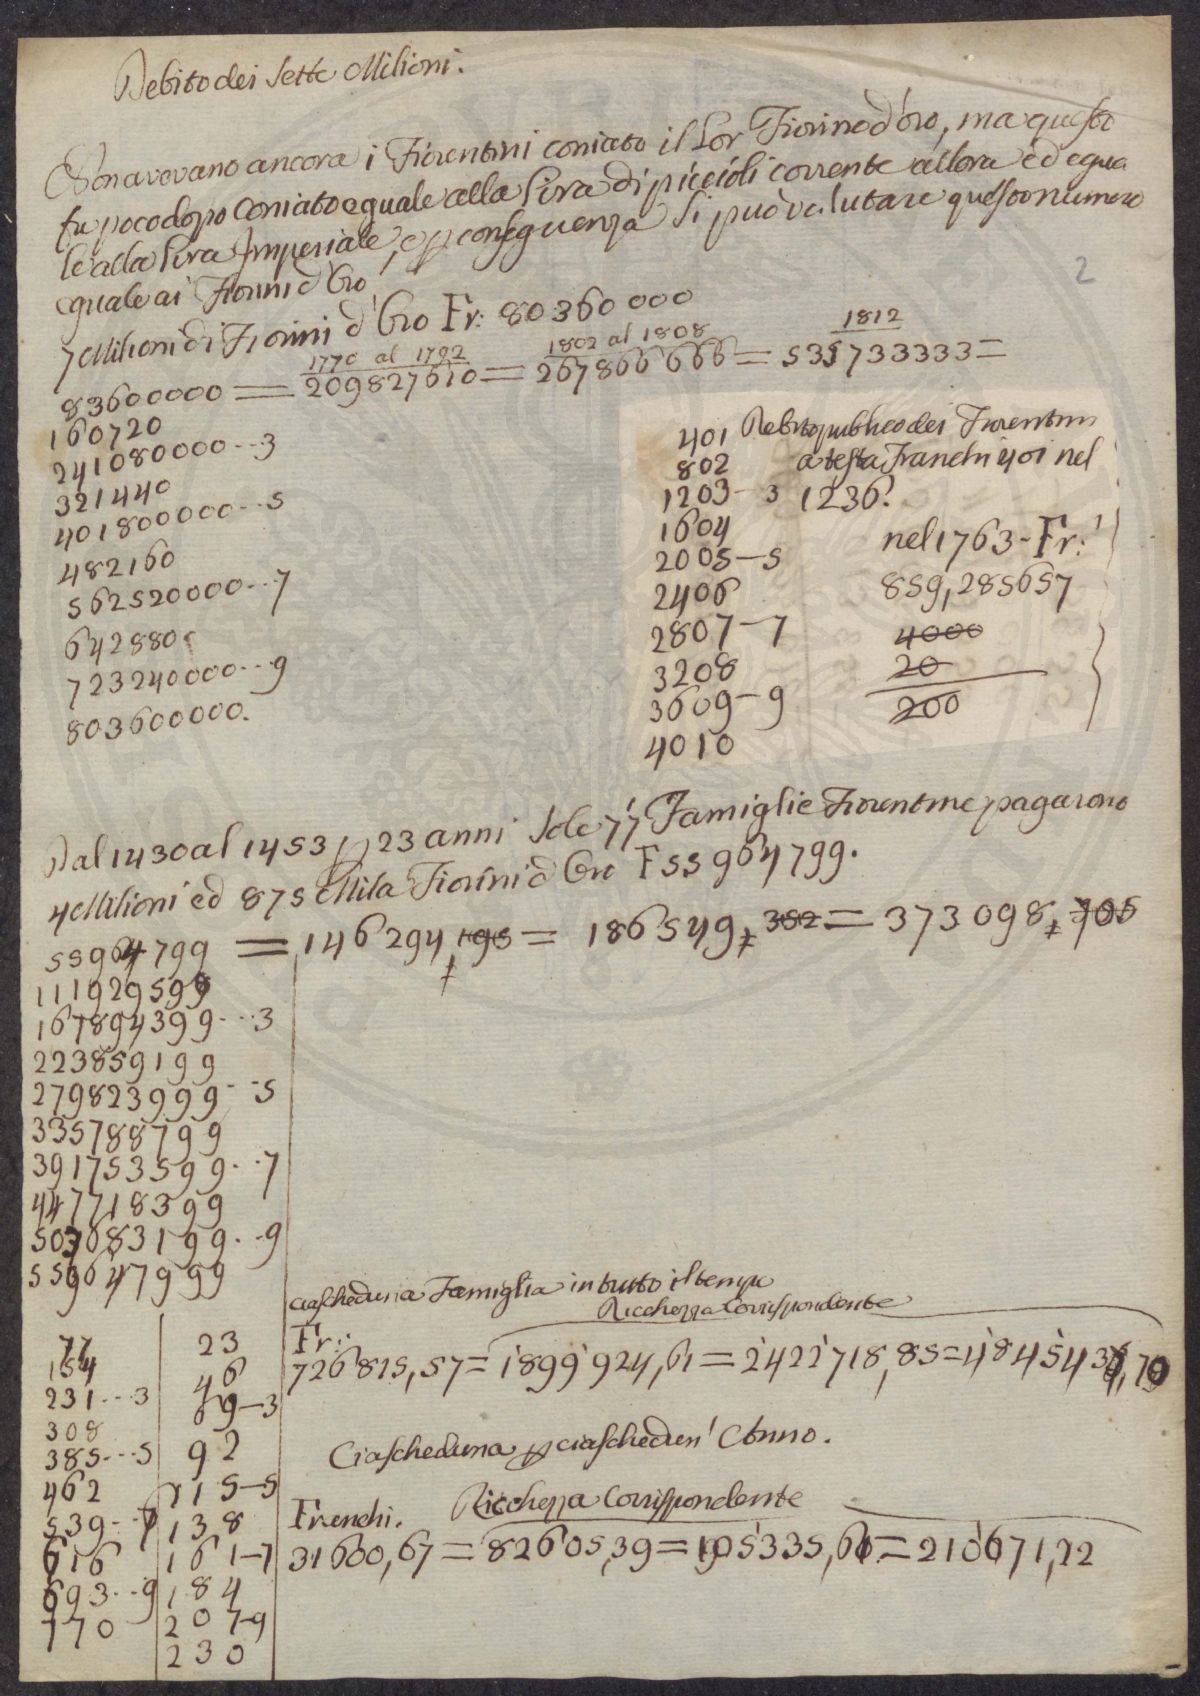 Debito dei Sette Milioni.
Non avevano ancora i Fiorentini coniato il lor Fiorino d'oro, ma questo
fu poco dopo coniato eguale alla Lira di piccioli corrente allora ed egua
le alla Lira Imperiale, e p conseguenza si può valutare questo numero
eguale ai Fiorini d'Oro
2
7 Milioni di Fiorini d'Oro Fr: 80360000
1770 al 1792 1802 al 1808 1812
83600000 = 209827610 = 267866666 = 535733333 =
160720
241080000...3
321440
401800000...5
482160
562520000...7
642880
723240000...9
803600000.
401 Debito publico dei Fiorentini
802 a testa Franchi 401 nel
1203-3 1236.
1604
2005-5 nel 1763 - Fr:
2406 859,285657
2807-7 4000
3208 20
3609-9 200
4010
Dal 1430 al 1453 p 23 anni Sole 77 Famiglie Fiorentine pagarono
4 Milioni ed 875 Mila Fiorini d'Oro F 55964799.
55964799 = 146294,195 = 186549, 352 = 373098, 705
111929599
167894399...3
223859199
279823999...5
335788799
391753599...7
447718399
503683199...9
559647999
ciascheduna Famiglia in tutto il tempo
Ricchezza Corrispondente
Fr:
726815,57 = 1899924,61 = 2422718,85 = 4845437,70
77 23
154 46
231...3 69-3
308 92
385...5 115-5
462 138
539...7 161-7
616 184
693...9 207-9
770 230
Ciascheduna p ciaschedun' Anno.
Franchi. Ricchezza Corrispondente
31600,67 = 82605,39 = 105335,61 = 210671,22